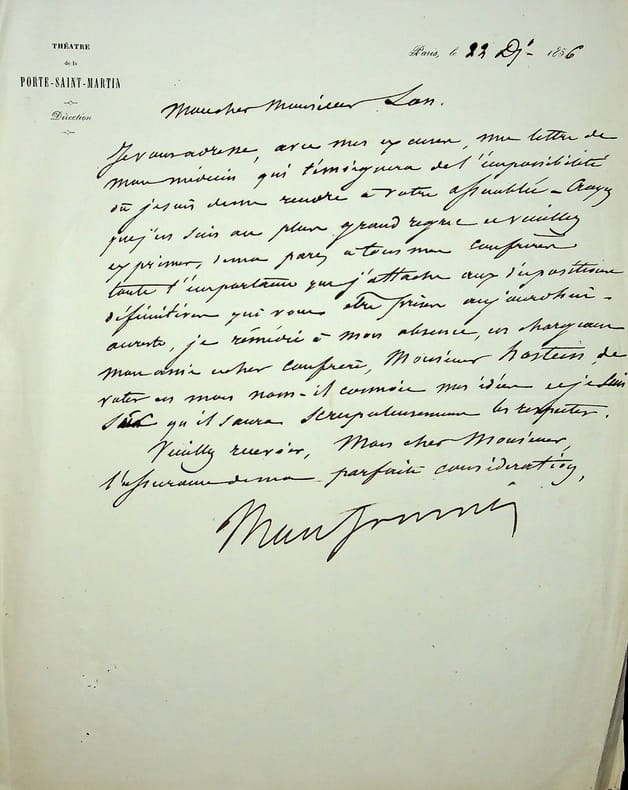 THÉATRE
de la
PORTE-SAINT-MARTIN
Direction
Paris, le 22 D 1856
Mon cher Monsieur
Je vous adresse, avec mes excuses, une lettre de
mon médecin qui témoignera de l'impossibilité
où je suis de me rendre à votre assemblée - Croyez
que j'en suis au plus grand regret et veuillez
exprimer, de ma part, à tous mes confrères
toute l'importance que j'attache aux dispositions
définitives qui vont être prises aujourd'hui -
au reste, je remédie à mon absence, en chargeant
mon ami et cher confrère, Monsieur hostein, de
voter en mon nom - il connaît mes idées et je suis
sûr qu'il saura scrupuleusement les respecter.
Veuillez recevoir, Mon cher Monsieur,
l'assurance de ma parfaite considération,